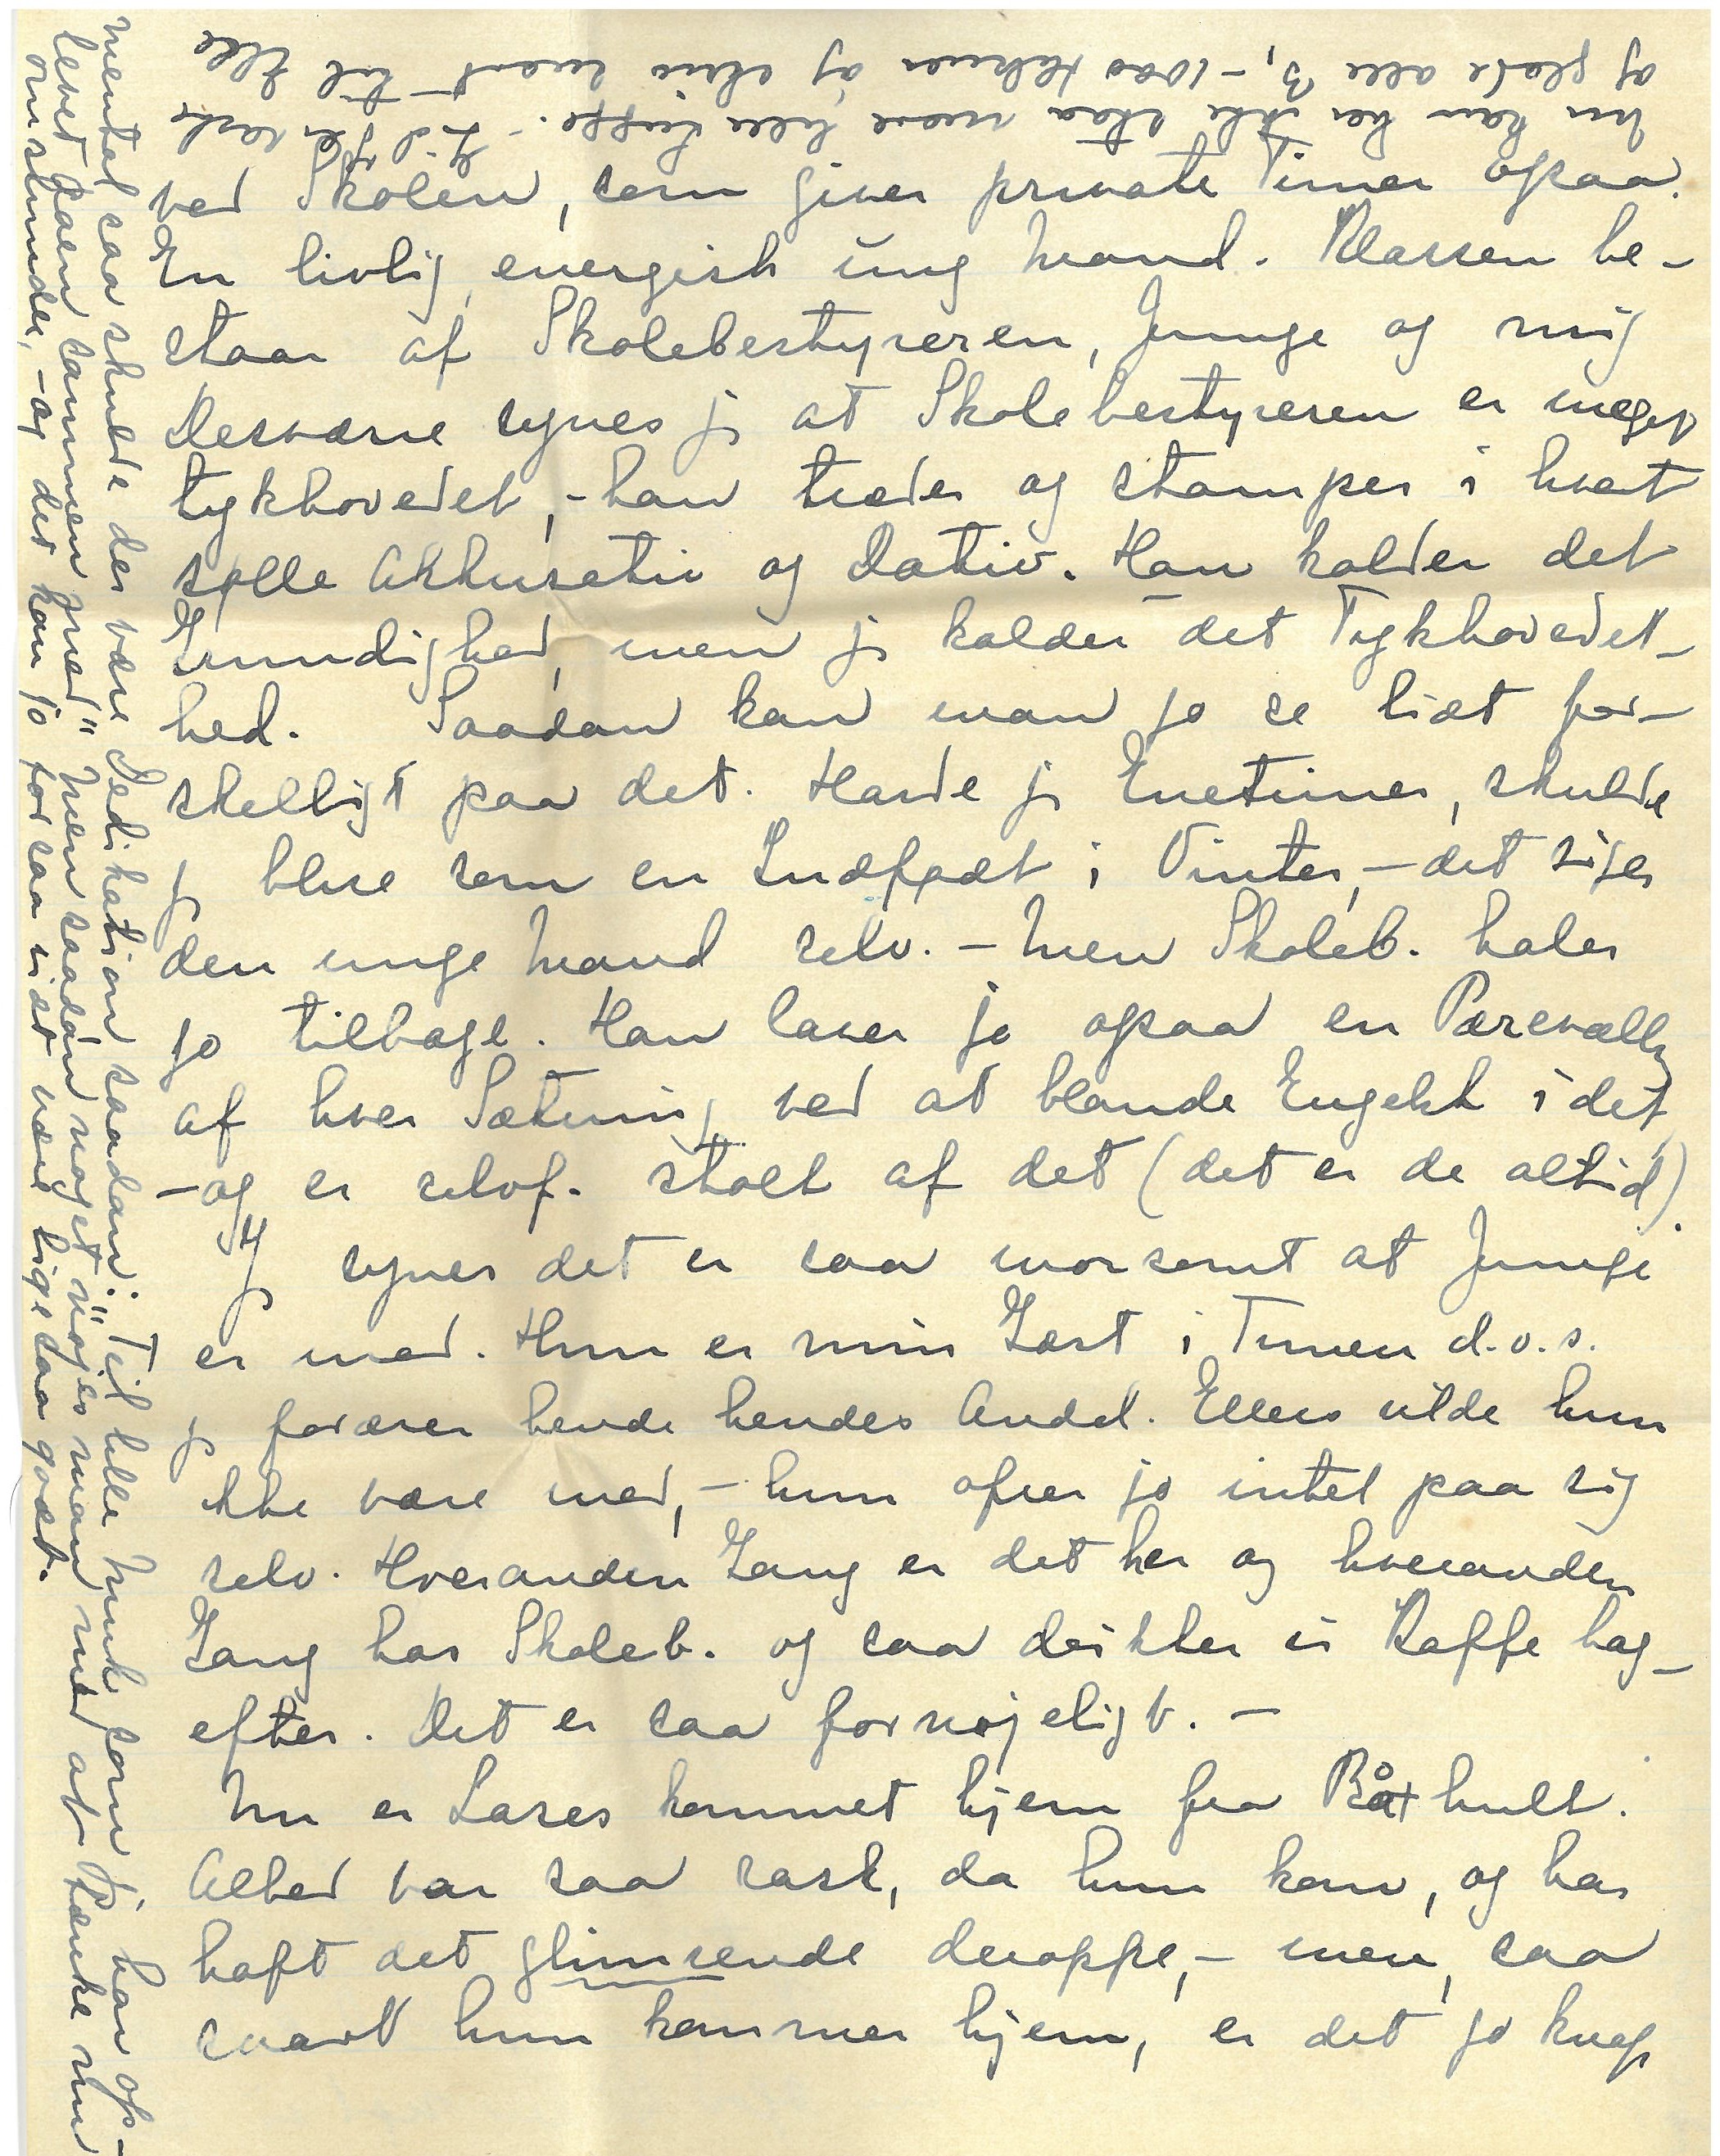 ved Skolen, som giver private Timer ogsaa.
En livlig, energisk ung Mand. Klassen be-
staar af Skolebestyreren, Junge og mig
Desværre synes j. at Skolebestyreren er meget
tykhovedet, - han træder og stamper i hvert
sølle Akkusativ og Dativ. Han kalder det
Grundighed, men j. kalder det Tykhovedet-
hed. Saadan kan man jo se liдt for-
skelligt paa det. Havde j. Enetimer, skulde
j. blive som en Indfødt i Vinter, - det siger
den unge Mand selv. - Men Skoleb. haler
jo tilbage. Han laver jo ogsaa en Pærevælling
af hver Sætning ved at blande Engelsk i det,
- og er selvf. stolt af det (det er de altid).
J. synes det er saa morsomt at Junge
er med. Hun er min Gæst i Timen d.v.s.
j. forærer hende hendes Andel. Ellers vilde hun
ikke være med, - hun ofrer jo intet paa sig
selv. Hveranden Gang er det her og hveranden
Gang hos Skoleb. og saa drikker vi Kaffe bag-
efter. Det er saa fornøjeligt. -
Nu er Lases kommet hjem fra Båxhult.
Alhed var saa rask, da hun kom, og har
haft det glimrende deroppe, - men, saa
snart hun kommer hjem, er det jo knap
Nu kan her ikke staa mere lille Putte. - Lid
af Glæde alle 3, - 1000 Hilsner og skriv snart - til Elle
mental saa skulde der være Dedikation saadan: "Til lille Muk som j. har op-
levet Daem sammen med" Men saadan noget nøjes man med at tænke sin
omstunder, - og det kan jo for saa vidt være lige saa godt.